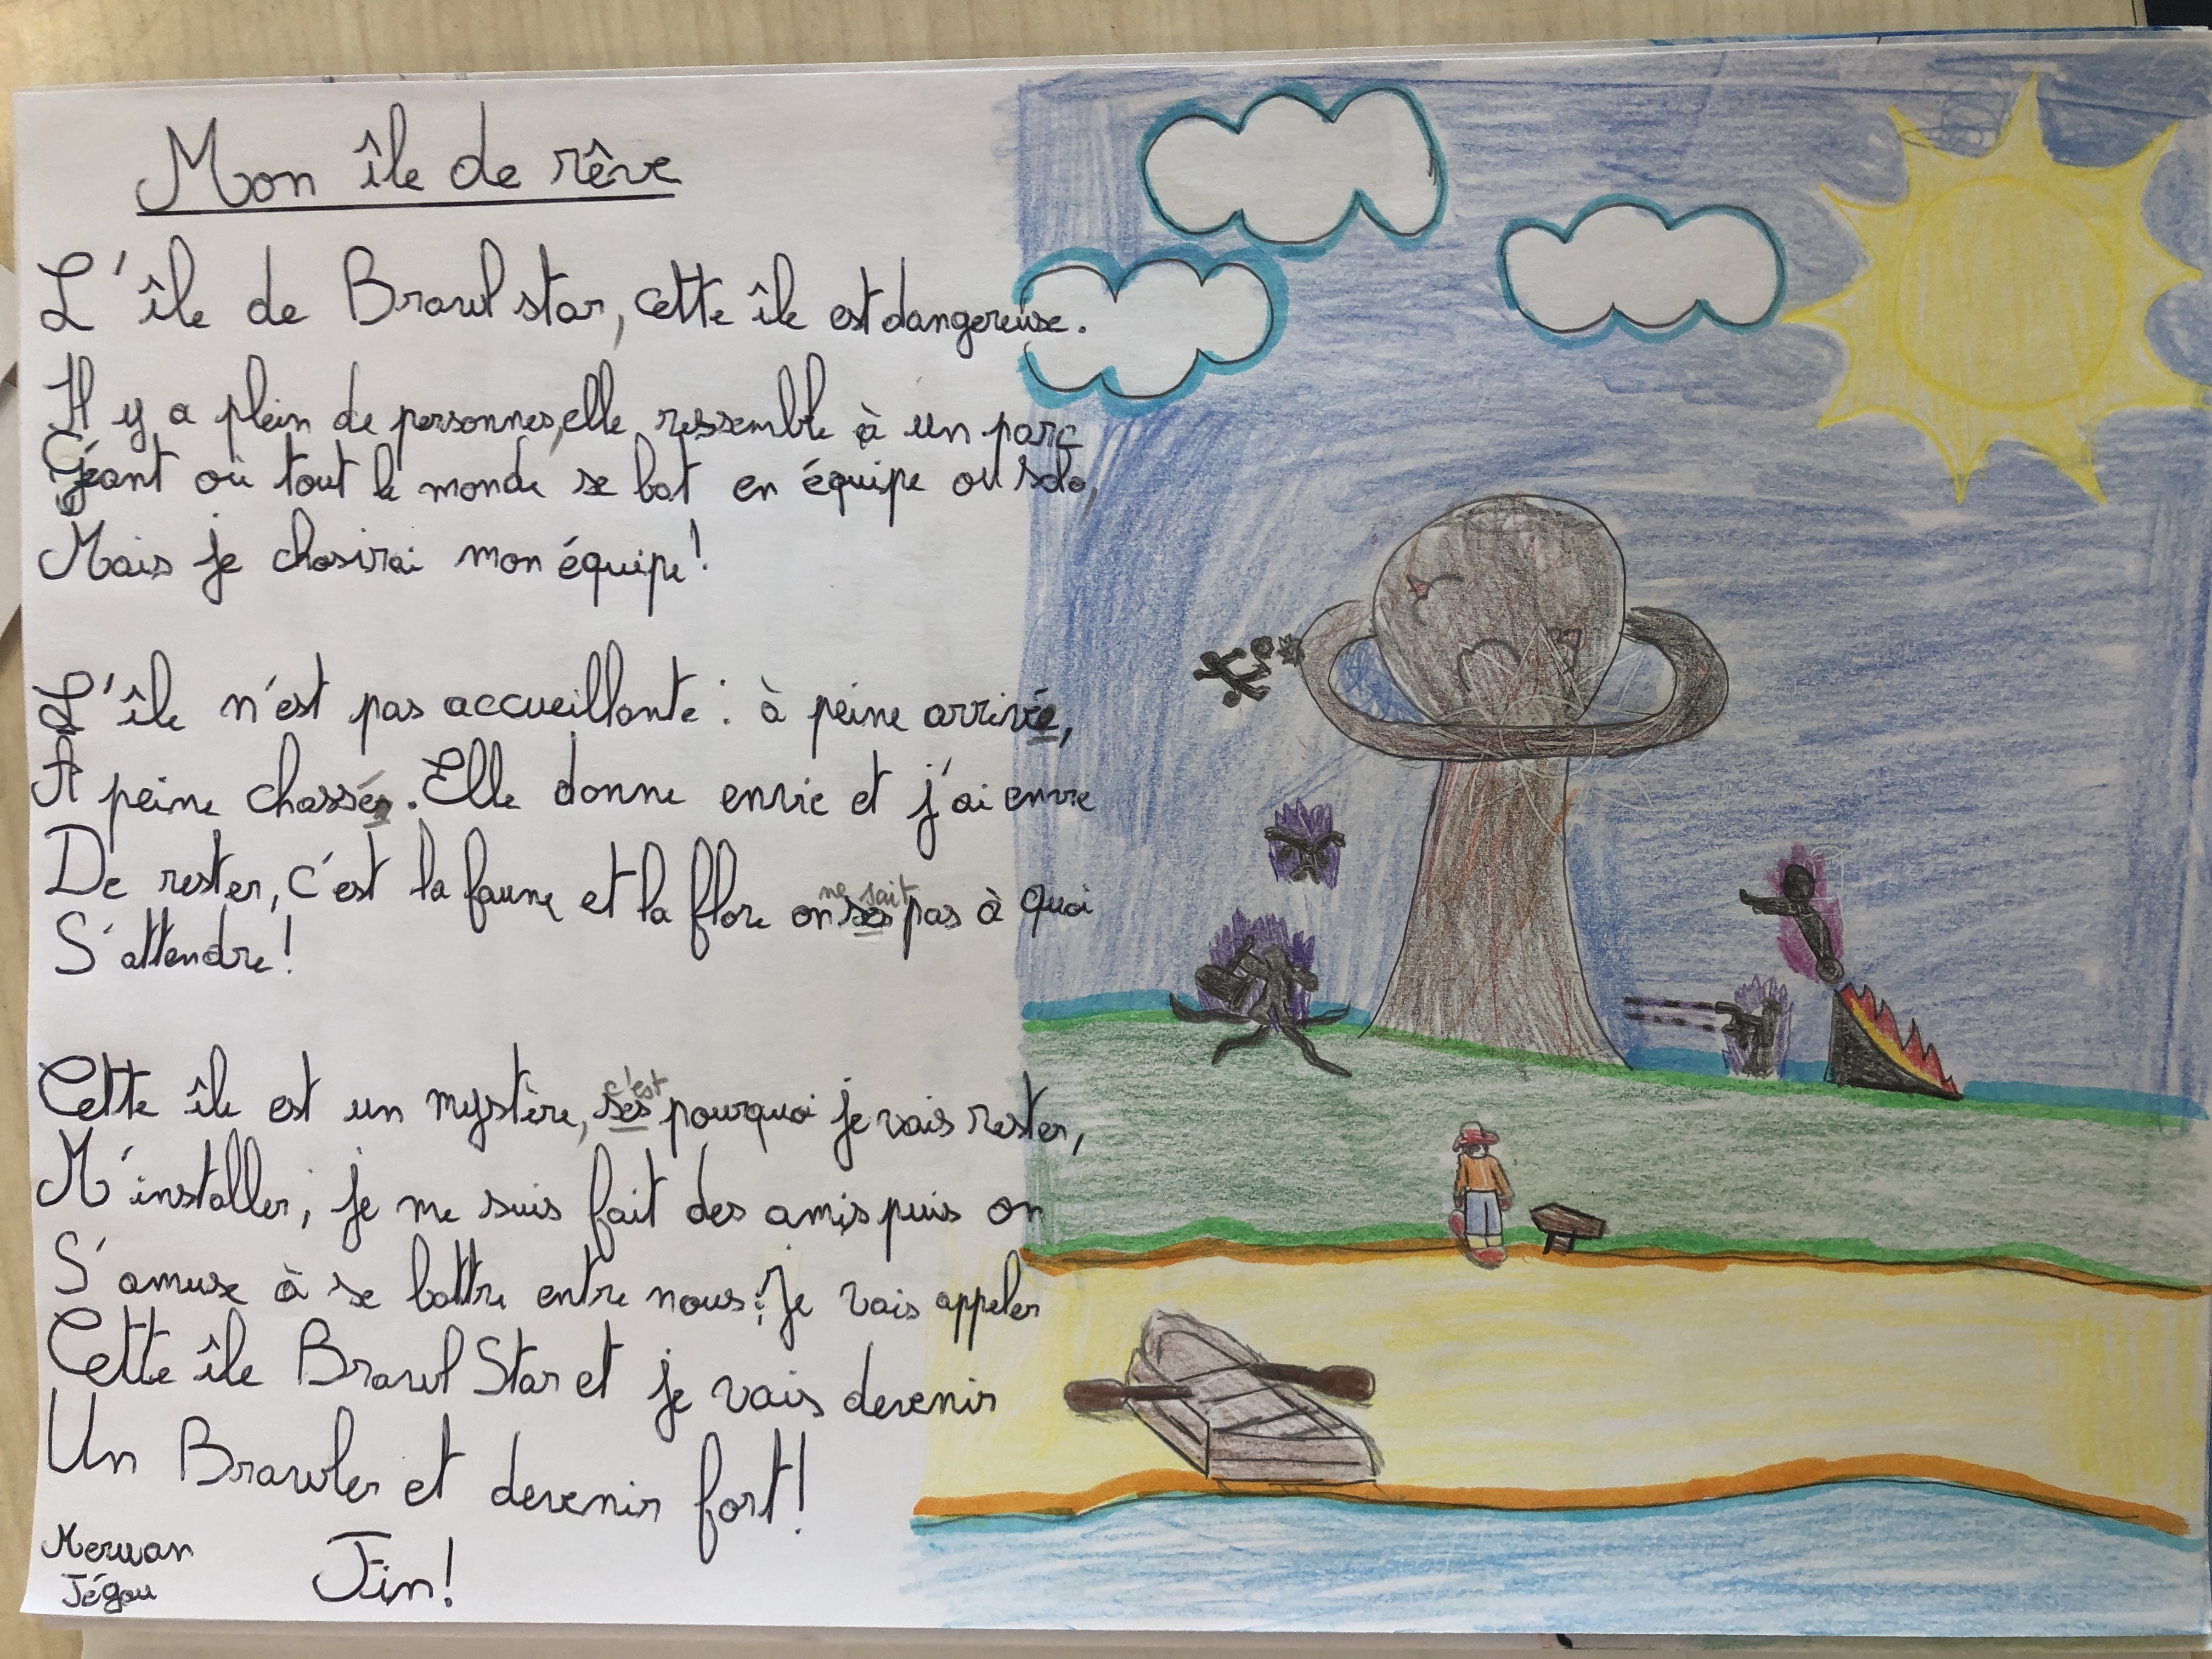 Mon île de rêve
L'île de Brawl star, cette île est dangereuse.
Il y a plein de personnes, elle ressemble à un parc
Géant où tout le monde se bat en équipe ou solo,
Mais je chosirai mon équipe !
L'île n'est pas accueillante : à peine arrivée,
A peine chassés. Elle donne envie et j'ai envie
De rester, c'est la faune et la flore on ne sait pas à quoi
S'attendre !
Cette île est un mystère, c'est pourquoi je vais rester,
M'installer, je me suis fait des amis puis on
S'amuse à se battre entre nous ! Je vais appeler
Cette île Brawl Star et je vais devenir
Un Brawler et devenir fort !
Merwan
Jégou
Fin !